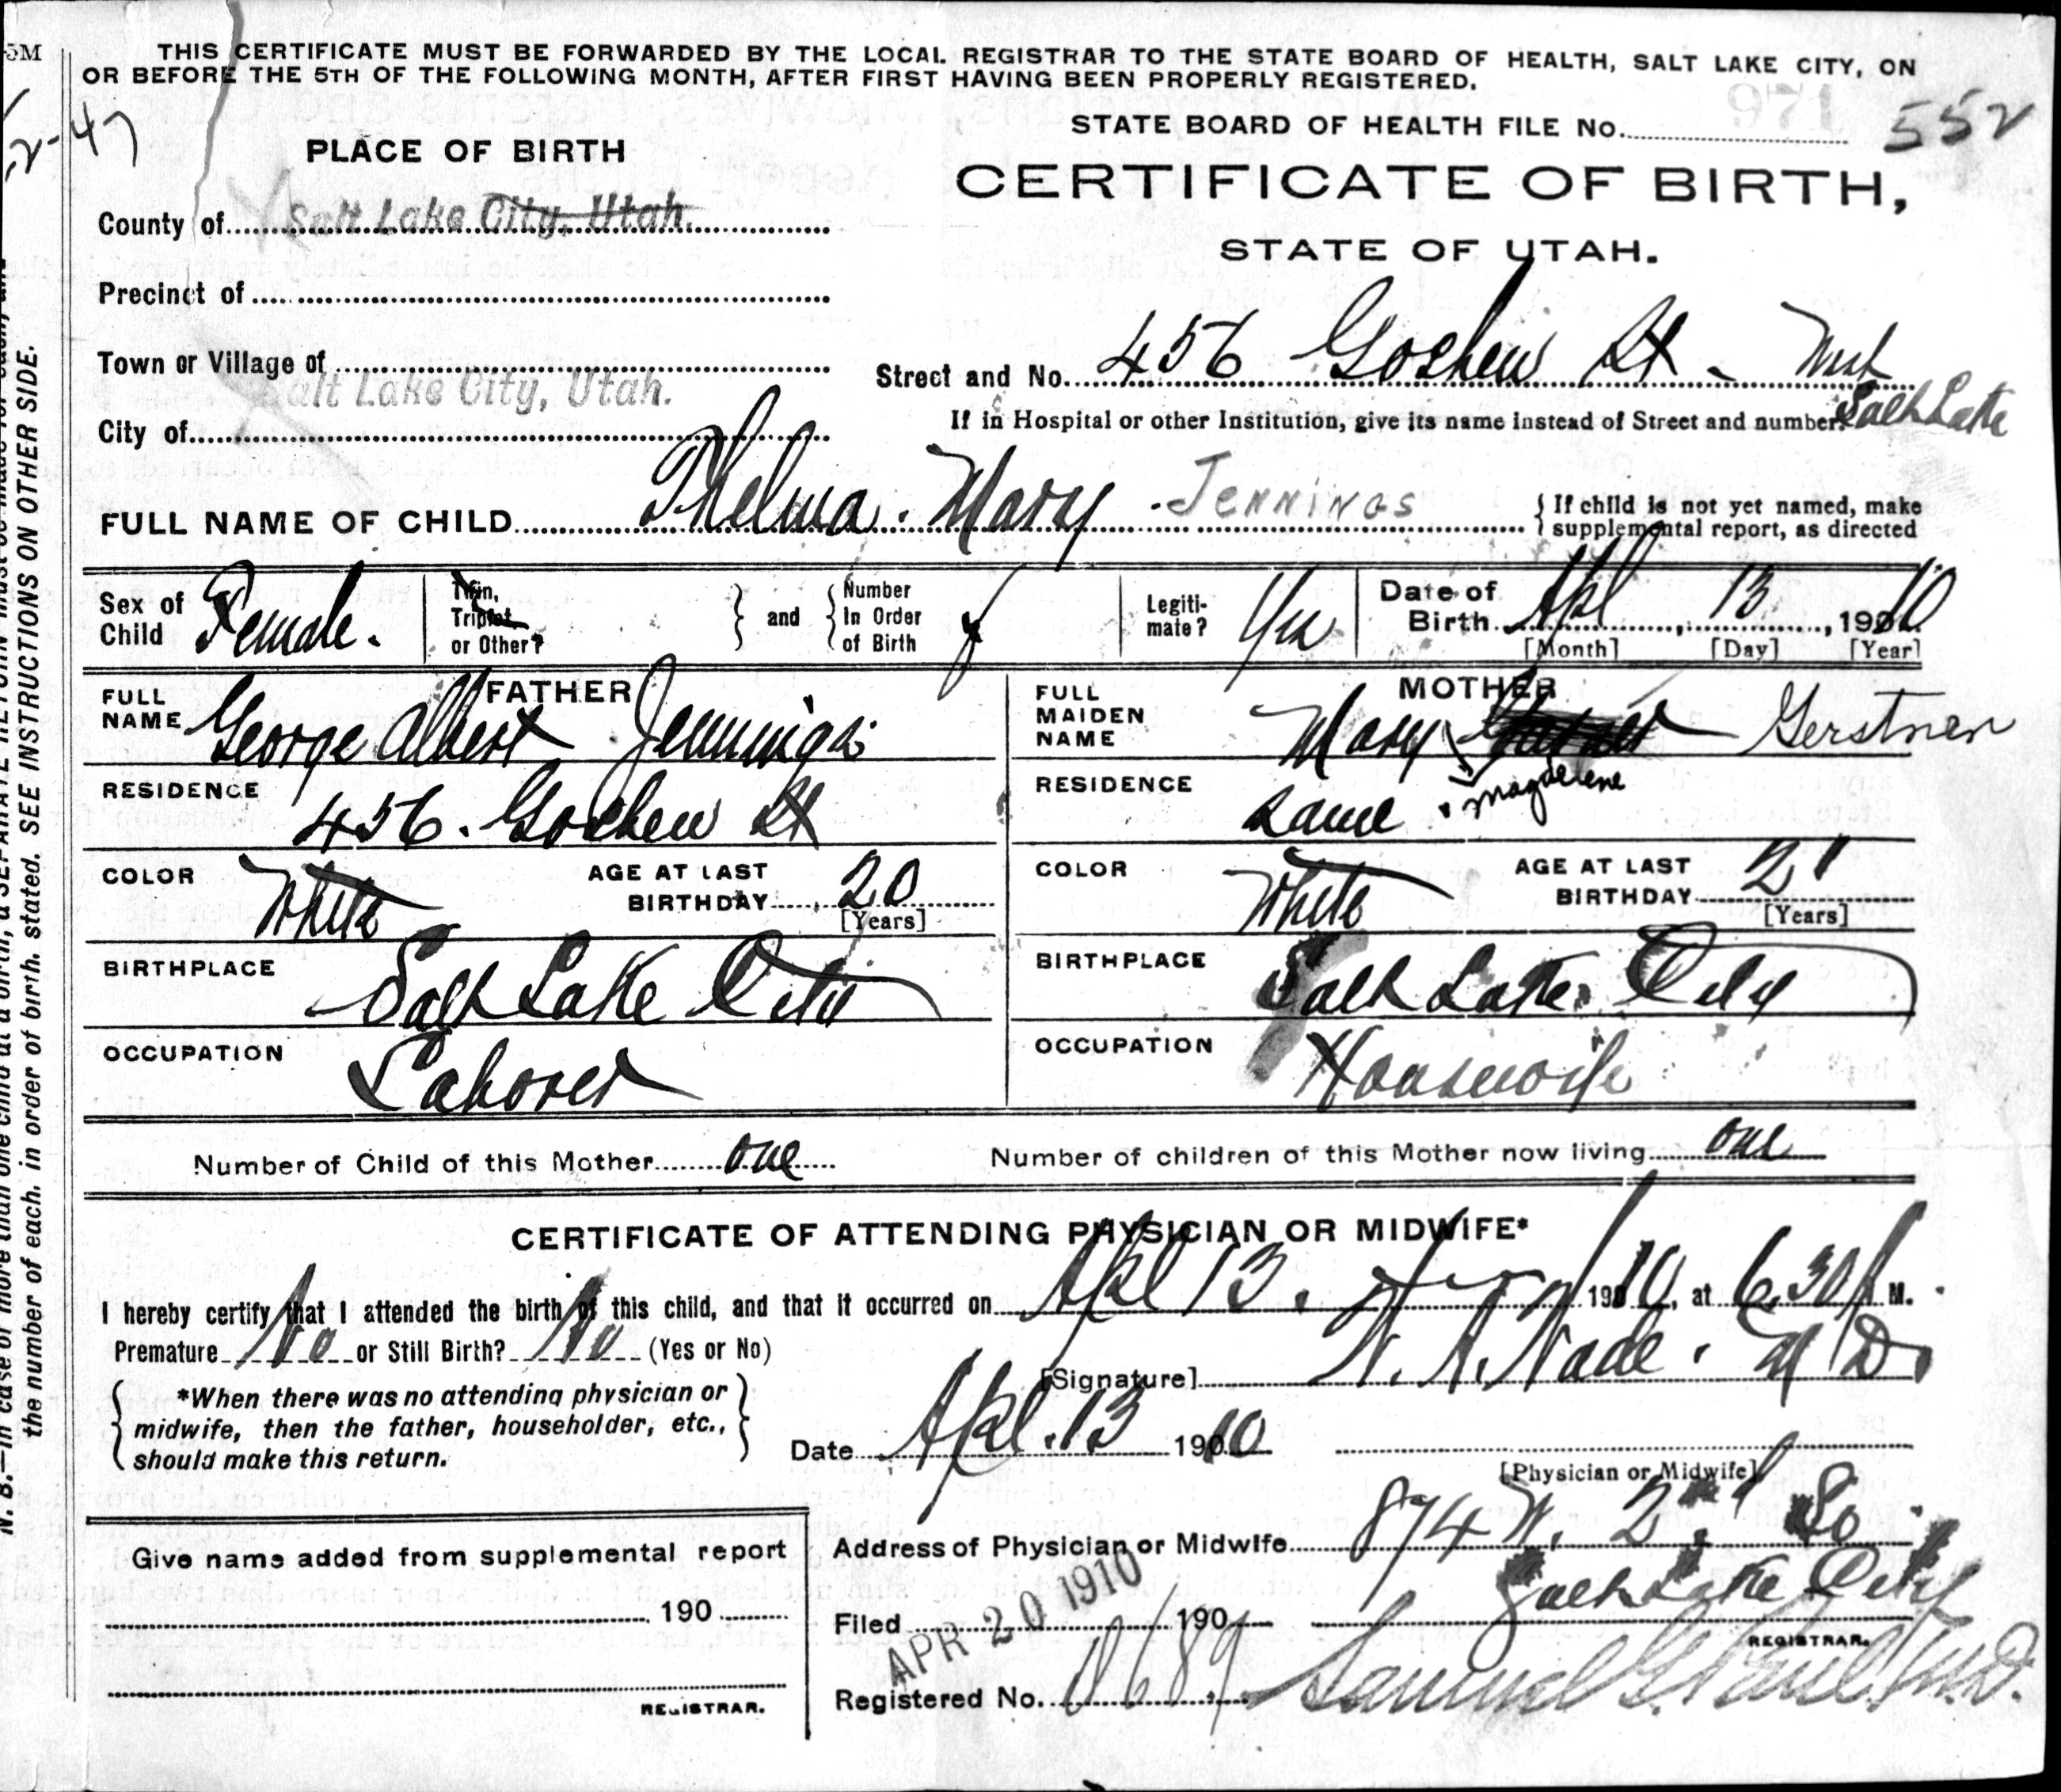 5M
THIS CERTIFICATE MUST BE FORWARDED BY THE LOCAL REGISTRAR TO THE STATE BOARD OF HEALTH, SALT LAKE CITY, ON
OR BEFORE THE 5TH OF THE FOLLOWING MONTH, AFTER FIRST HAVING BEEN PROPERLY REGISTERED.
STATE BOARD OF HEALTH FILE No. 971 552
PLACE OF BIRTH
CERTIFICATE OF BIRTH,
STATE OF UTAH.
County of Salt Lake City, Utah.
Precinct of
Town or Village of
Street and No. 456 Goshen St - West
Salt Lake
If in Hospital or other Institution, give its name instead of Street and number.
City of Salt Lake City, Utah.
FULL NAME OF CHILD Thelma. Mary Jennings
{ If child is not yet named, make
supplemental report, as directed
Sex of
Child Female.
Twin,
Triplet
or Other?
and
Number
In Order
of Birth
Legiti-
mate? Yes
Date of
Birth Apl 13, 1910
[Month] [Day] [Year]
FATHER
FULL
NAME George Albert Jennings
RESIDENCE 456. Goshen St
COLOR White
AGE AT LAST
BIRTHDAY 20
[Years]
BIRTHPLACE Salt Lake City
OCCUPATION Laborer
MOTHER
FULL
MAIDEN
NAME Mary Magdelene Gerstner
RESIDENCE Same
COLOR White
AGE AT LAST
BIRTHDAY 21
[Years]
BIRTHPLACE Salt Lake City
OCCUPATION Housewife
Number of Child of this Mother one
Number of children of this Mother now living one
CERTIFICATE OF ATTENDING PHYSICIAN OR MIDWIFE*
I hereby certify that I attended the birth of this child, and that it occurred on Apl 13. 1910, at 6.30 P M.
Premature No or Still Birth? No (Yes or No)
*When there was no attending physician or
midwife, then the father, householder, etc.,
should make this return.
[Signature] M D.
Date Apl. 13 1910
[Physician or Midwife]
Address of Physician or Midwife 874 W. 2nd So
Salt Lake City
Give name added from supplemental report
190
REGISTRAR.
Filed APR 20 1910 190
REGISTRAR.
Registered No. 0689 Samuel G. Paul M.D.
N. B.—In case of more than one child at a birth, a SEPARATE RETURN must be made for each, and
the number of each, in order of birth, stated. SEE INSTRUCTIONS ON OTHER SIDE.